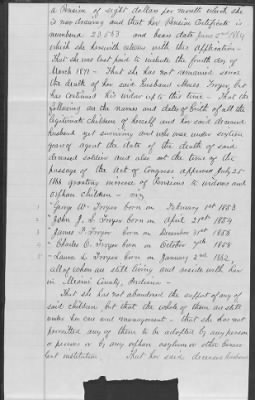 a Pension of eight dollars per month which she
is now drawing and that her Pension Certificate is
numbered 23563 and bears date June 2nd 1864
which she herewith returns with this application -
That she was last paid to include the fourth day of
March 1871 - That she has not remarried since
the death of her said husband Moses Troyer but
has continued his widow up to this time - That the
following are the names and dates of birth of all the
legitimate children of herself and her said deceased
husband yet surviving and who were under sixteen
years of age at the date of the death of said
deceased soldier and also at the time of the
passage of the Act of Congress approved July 25-
1866 granting increase of Pensions to widows and
orphan children - viz
1 George W. Troyer born on February 1st 1853
2 John J. L. Troyer born on April 21st 1854
3 James F. Troyer born on December 31st 1855
4 Charles O. Troyer born on October 7th 1858
5 Laura L. Troyer born on January 2nd 1862,
all of whom are still living and reside with her
in Miami County, Indiana -
That she has not abandoned the support of any of
said children, but that the whole of them are still
under her care and management - that she has not
permitted any of them to be adopted by any person
or persons or by any orphan asylum or other benevo
lent institution. That her said deceased husband